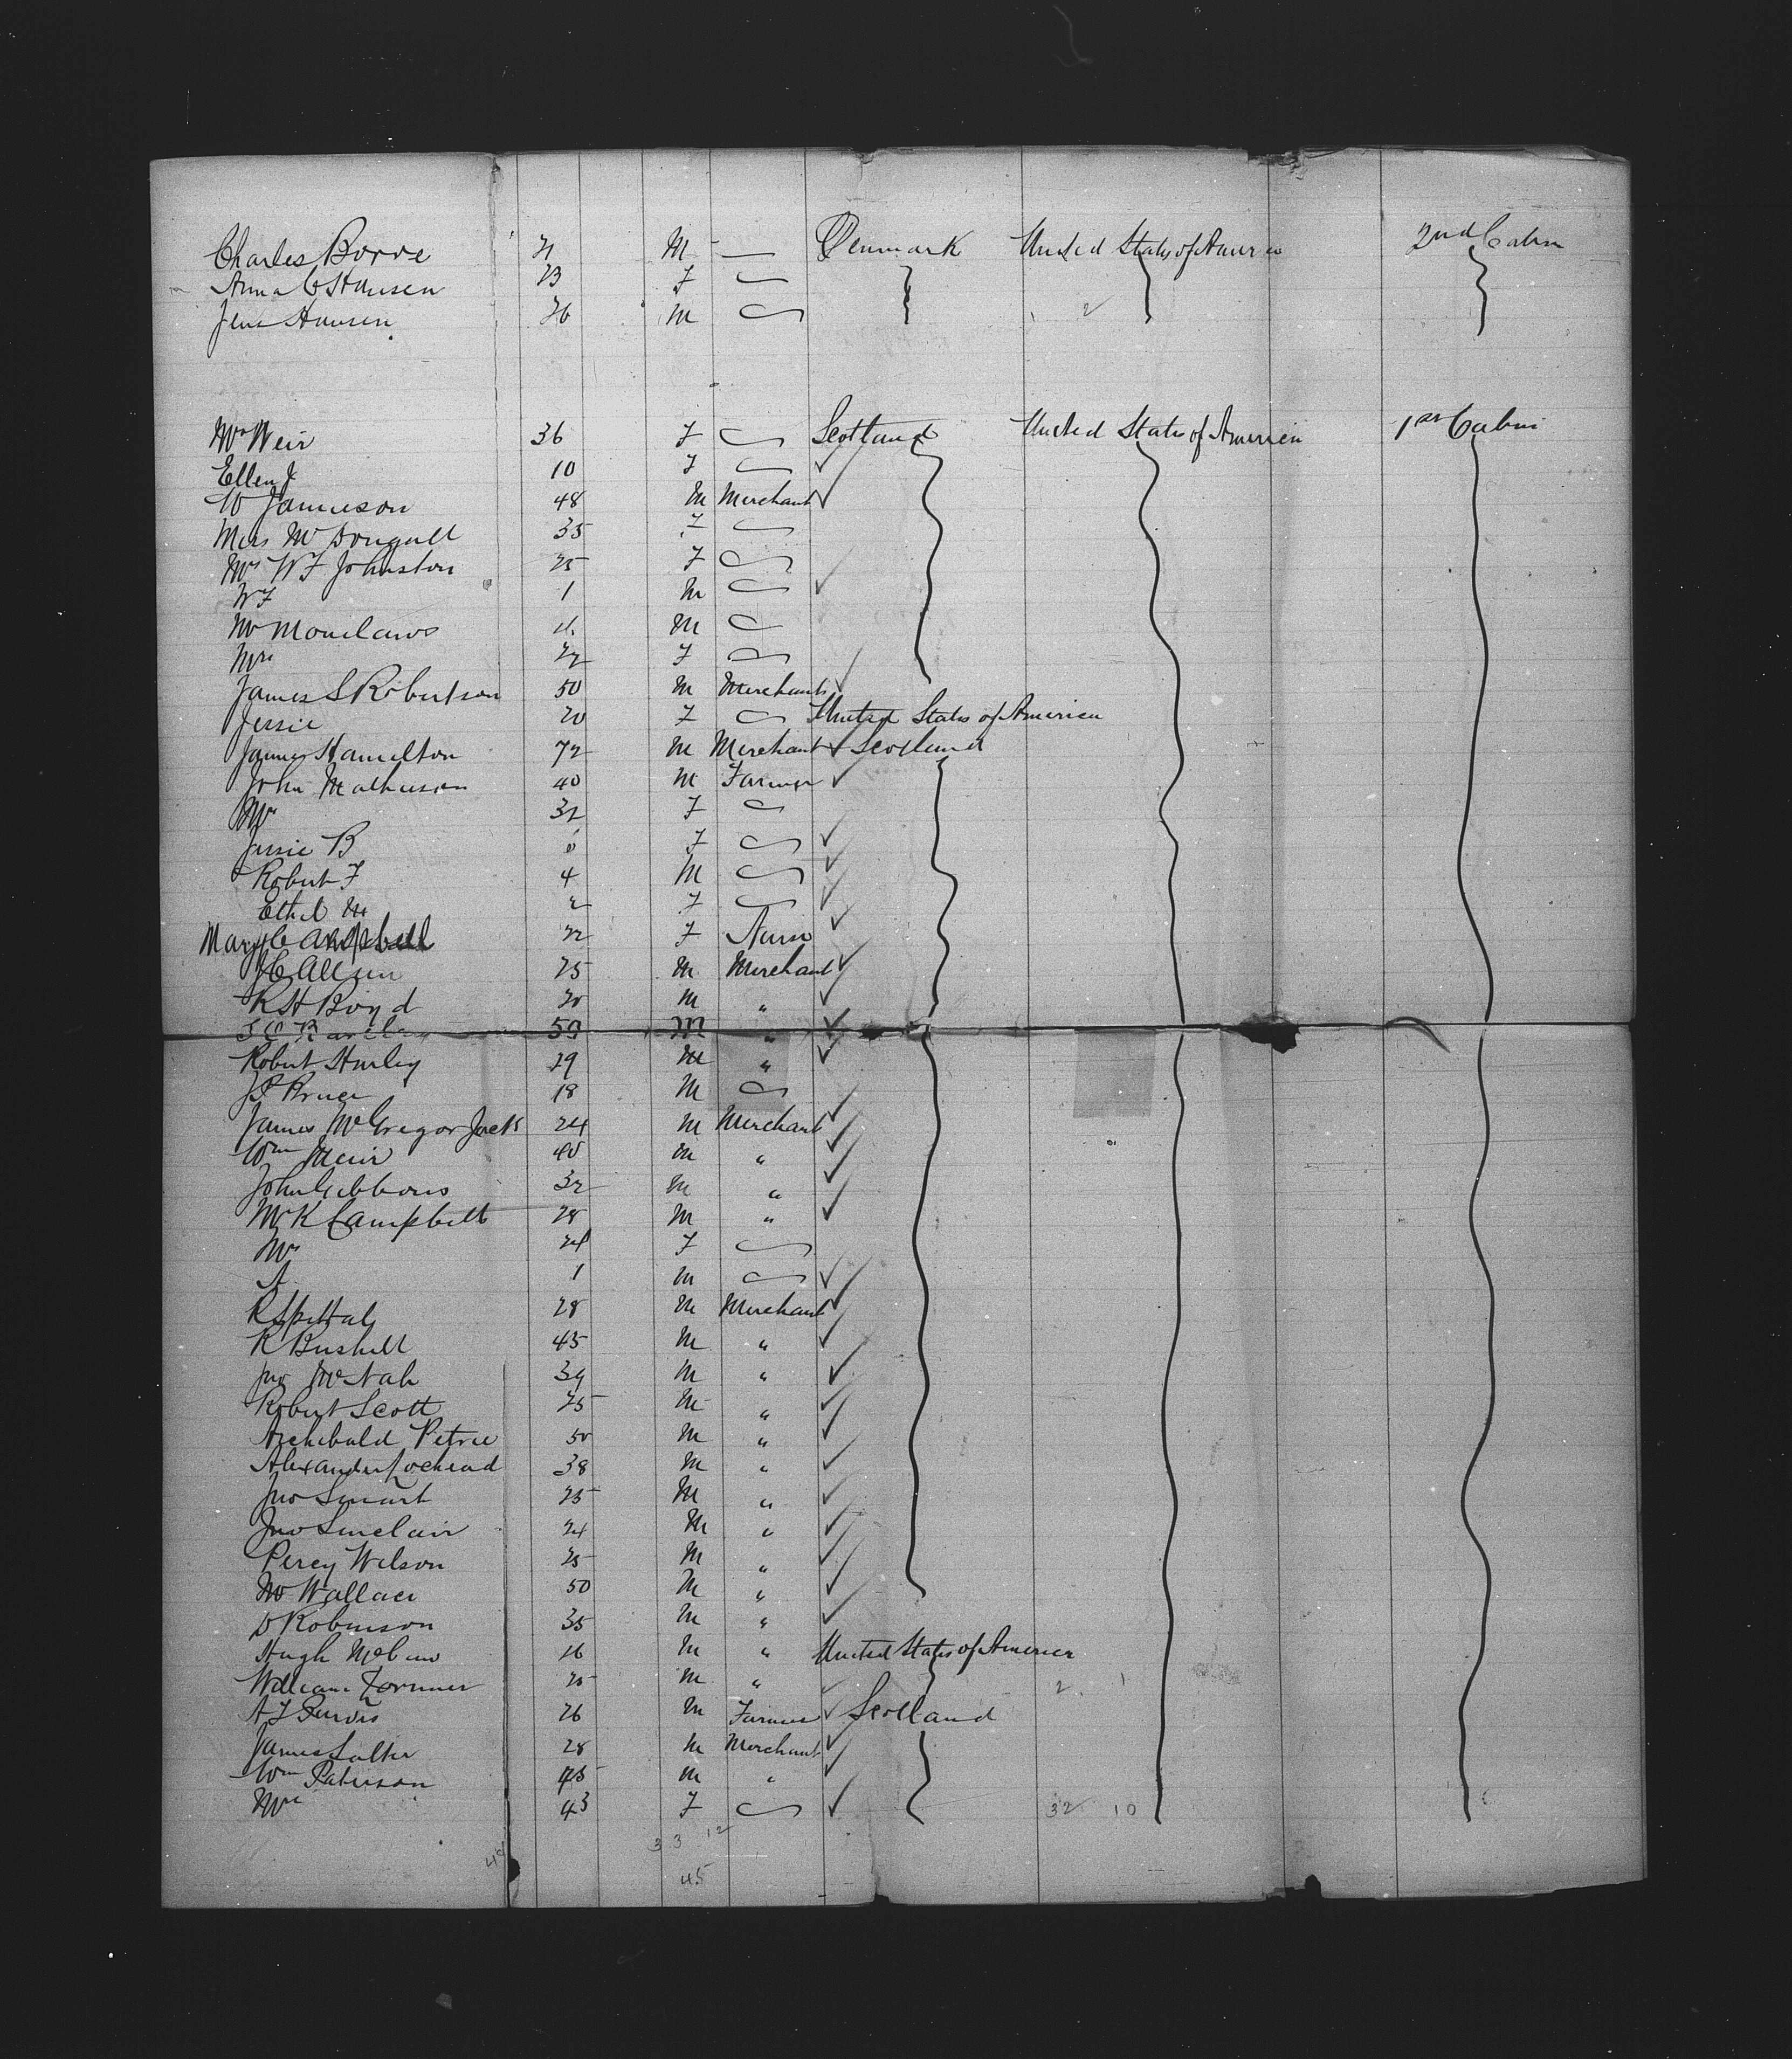 Charles Borre 21 M — Denmark United States of America 2nd Cabin
Anna C Hansen 23 F
Jens Hansen 26 M 2
Mrs Weir 36 F Scotland United States of America 1st Cabin
Ellen J 10 F
W Jamieson 48 M Merchant
Miss McDougall 35 F
Mrs W F Johnston 25 F
W F 1 M
Mr M
Mrs 22 F
James S Robertson 50 M Merchant
Jessie 20 F United States of America
James Hamilton 72 M Merchant Scotland
John Matheson 40 M Farmer
Mrs 32 F
Jessie B F
Robert F 4 M
Ethel M 2 F
Mary Campbell 22 F Nurse
J C Allen 25 M Merchant
R H Boyd 30 M "
59 M "
Robert Hurley 29 M "
J P Bruce 18 M
James McGregor Jack 24 M Merchant
Wm Muir 40 M "
John Gibbons 32 M "
Mr K Campbell 28 M "
Mrs 24 F
A 1 M
R Spittal 28 M Merchant
R Bushell 45 M "
Jno McNab 34 M "
Robert Scott 25 M "
Archibald Petrie 50 M "
Alexander Lochead 38 M "
Jno Smart 25 M "
Jno Sinclair 24 M "
Percy Wilson 25 M "
Mr Wallace 50 M "
D Robinson 35 M "
Hugh 26 M " United States of America
William 25 M " 2 1
A F Purves 26 M Farmer Scotland
James Salter 28 M Merchant
Wm Paterson 45 M "
Mrs 43 F 32 10
33 12
48
45